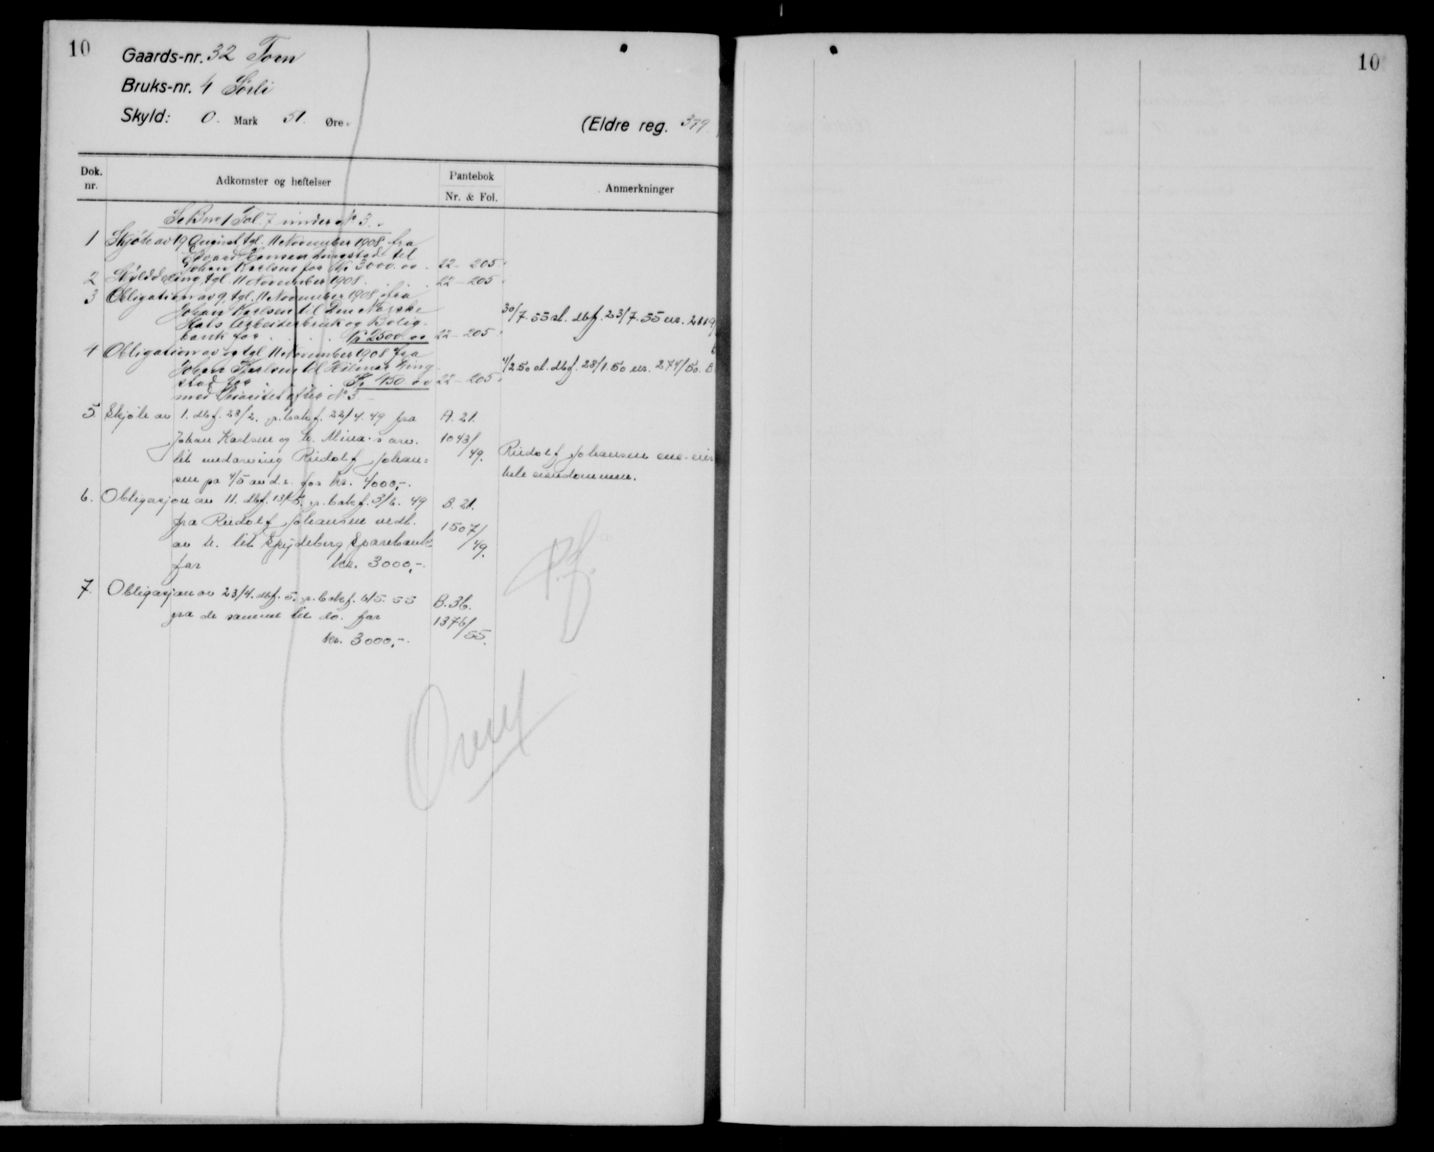 10
Gaards-nr. 32 Tom
Bruks-nr. 4 Sörli
Skyld: 0. Mark 51. Øre.
(Eldre reg. 379.
Dok. nr.
Adkomster og heftelser
Pantebok
Nr. & Fol.
Anmerkninger
Se Bnr 1 Fol. 7 under № 3.
1 Skjöte av 19 August tgl. 11 November 1908 fra
til
Johan Karlsen for Kr 3000.00. 22 - 205.
2 Skylddeling tgl. 11 November 1908. 22 - 205.
3 Obligation av 9, tgl. 11 November 1908 fra
Johan Karlsen til Den Norske
Stats Arbeiderbruk og Bolig-
bank for Kr 2500.00 22 - 205
30/7.55 sl. dbf. 23/7.55 nr. 2119
4 Obligation av tgl 11 November 1908 fra
Johan Karlsen til Hilmar Ling-
stad for Kr 450.00 22 - 205.
1/2.50 sl. dbf. 28/1.50 nr. 274/50. B
med Prioritet efter № 3
5. Skjøte av 1. dbf. 28/2. 22/4.49 fra
A. 21.
Johan Karlsen og h. Mina s arv.
1043/49.
til medarving Rudolf Johan-
sen på 4/5 and. for kr. 4000,-.
Rudolf Johansen ene-eier
hele eiendommen.
6. Obligasjon av 11. dbf. 13/5. 3/6. 49
B. 21.
fra Rudolf Johansen vedt.
1507/49.
av h. til Spydeberg Sparebank
for kr. 3000,-.
7. Obligasjon av 23/4. dbf. 5. 6/5. 55
B. 36.
fra de samme til do. for
1376/55.
kr. 3000,-.
Overf
10